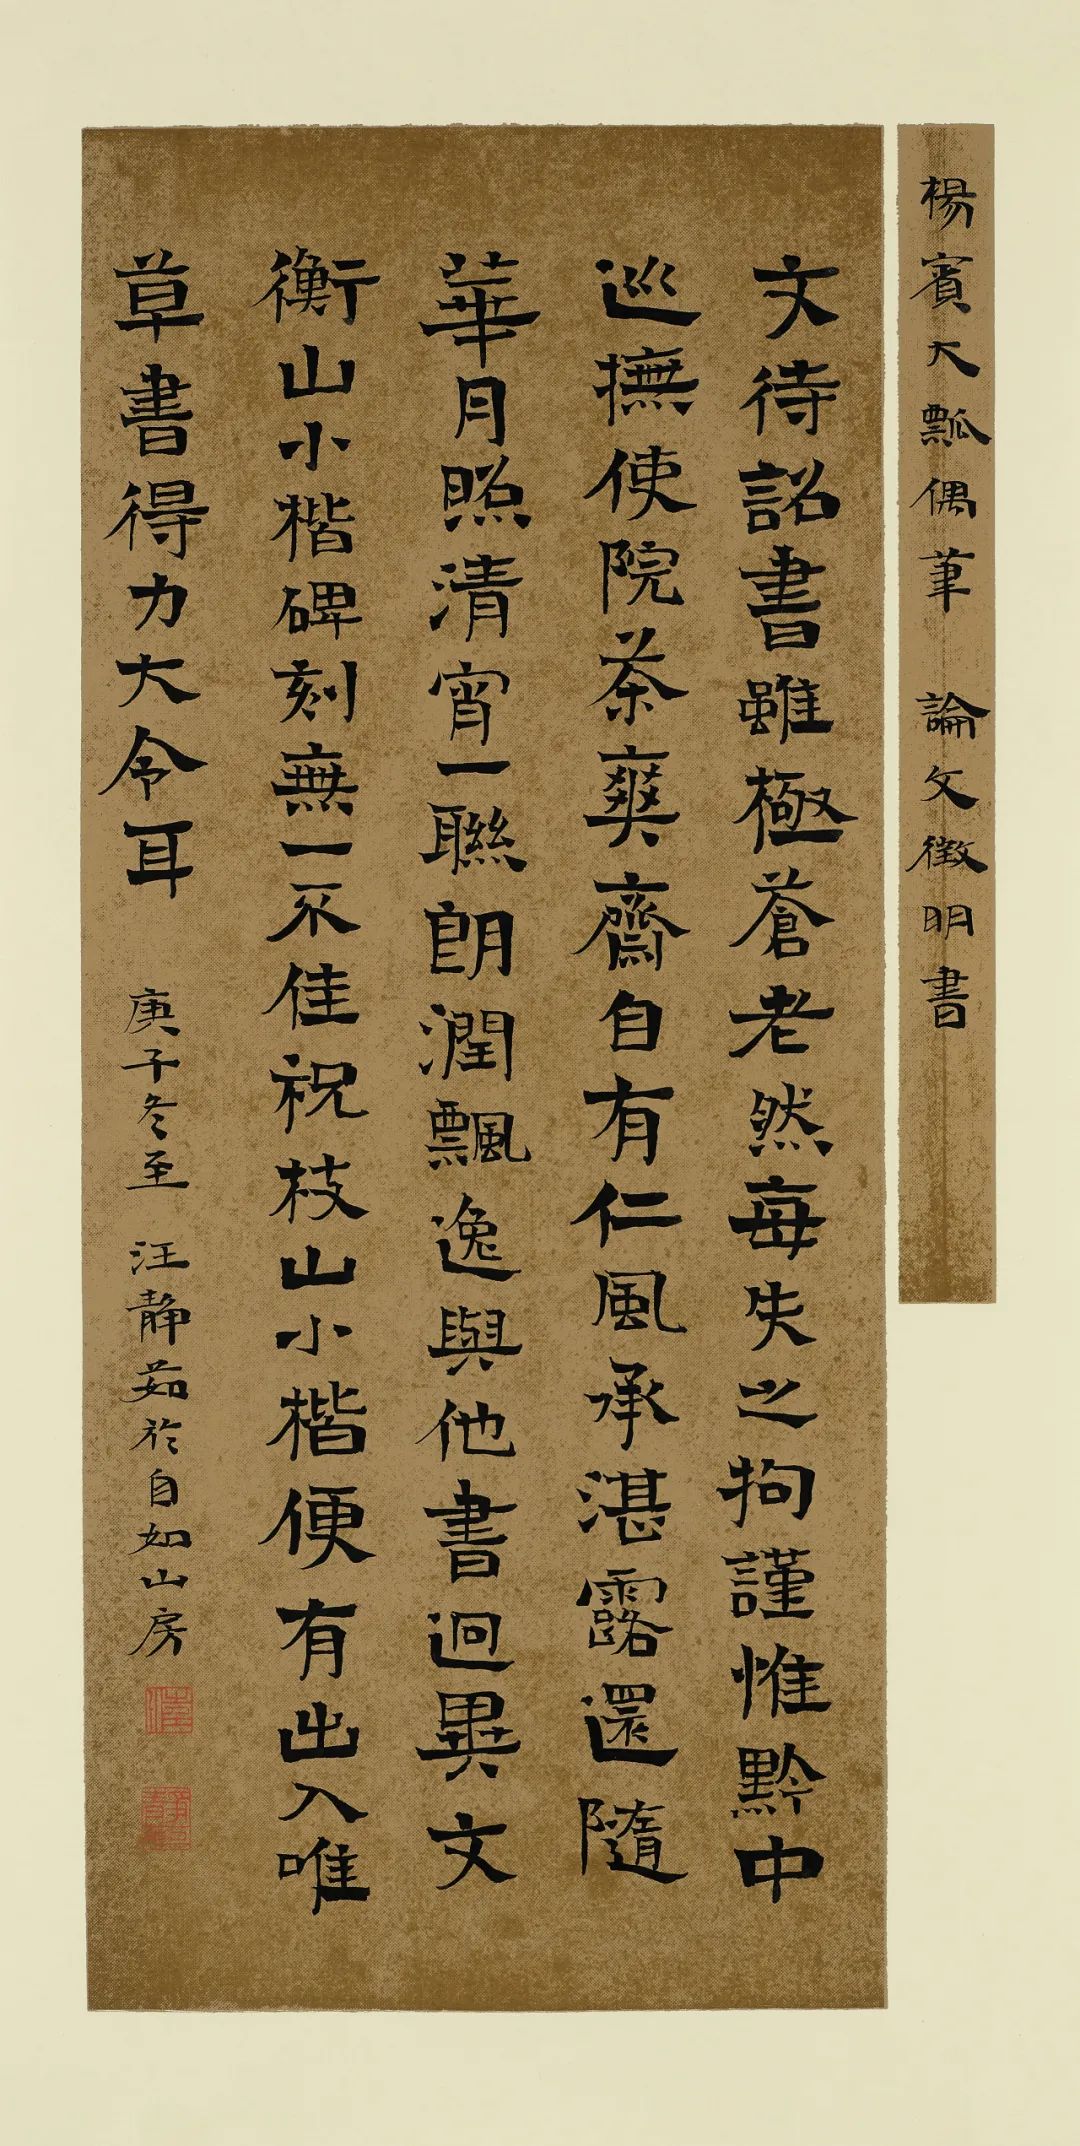 楊賓大瓢偶筆 論文徵明書
文待詔書雖極蒼老然每失之拘謹惟黔中
巡撫使院茶爽齋自有仁風承湛露還隨
華月照清宵一聯朗潤飄逸與他書迥異文
衡山小楷碑刻無一不佳祝枝山小楷便有出入唯
草書得力大令耳
庚子冬至 汪静茹於自如山房